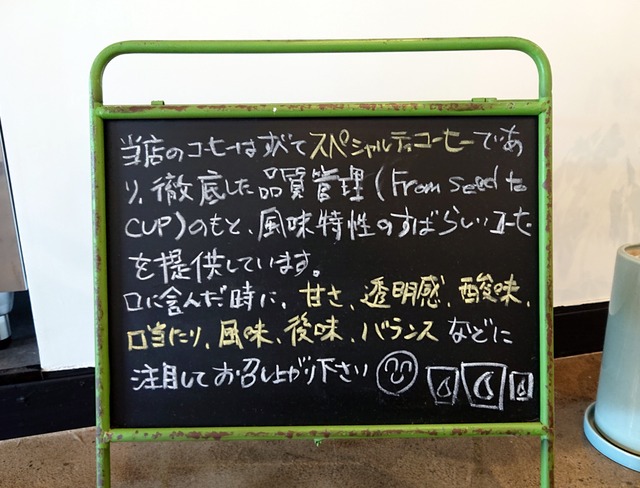 当店のコーヒーはすべてスペシャルティコーヒーであ
り、徹底した品質管理(From seed to
CUP)のもと、風味特性のすばらしいコーヒー
を提供しています。
口に含んだ時に、甘さ、透明感、酸味、
口当たり、風味、後味、バランスなどに
注目してお召し上がり下さい